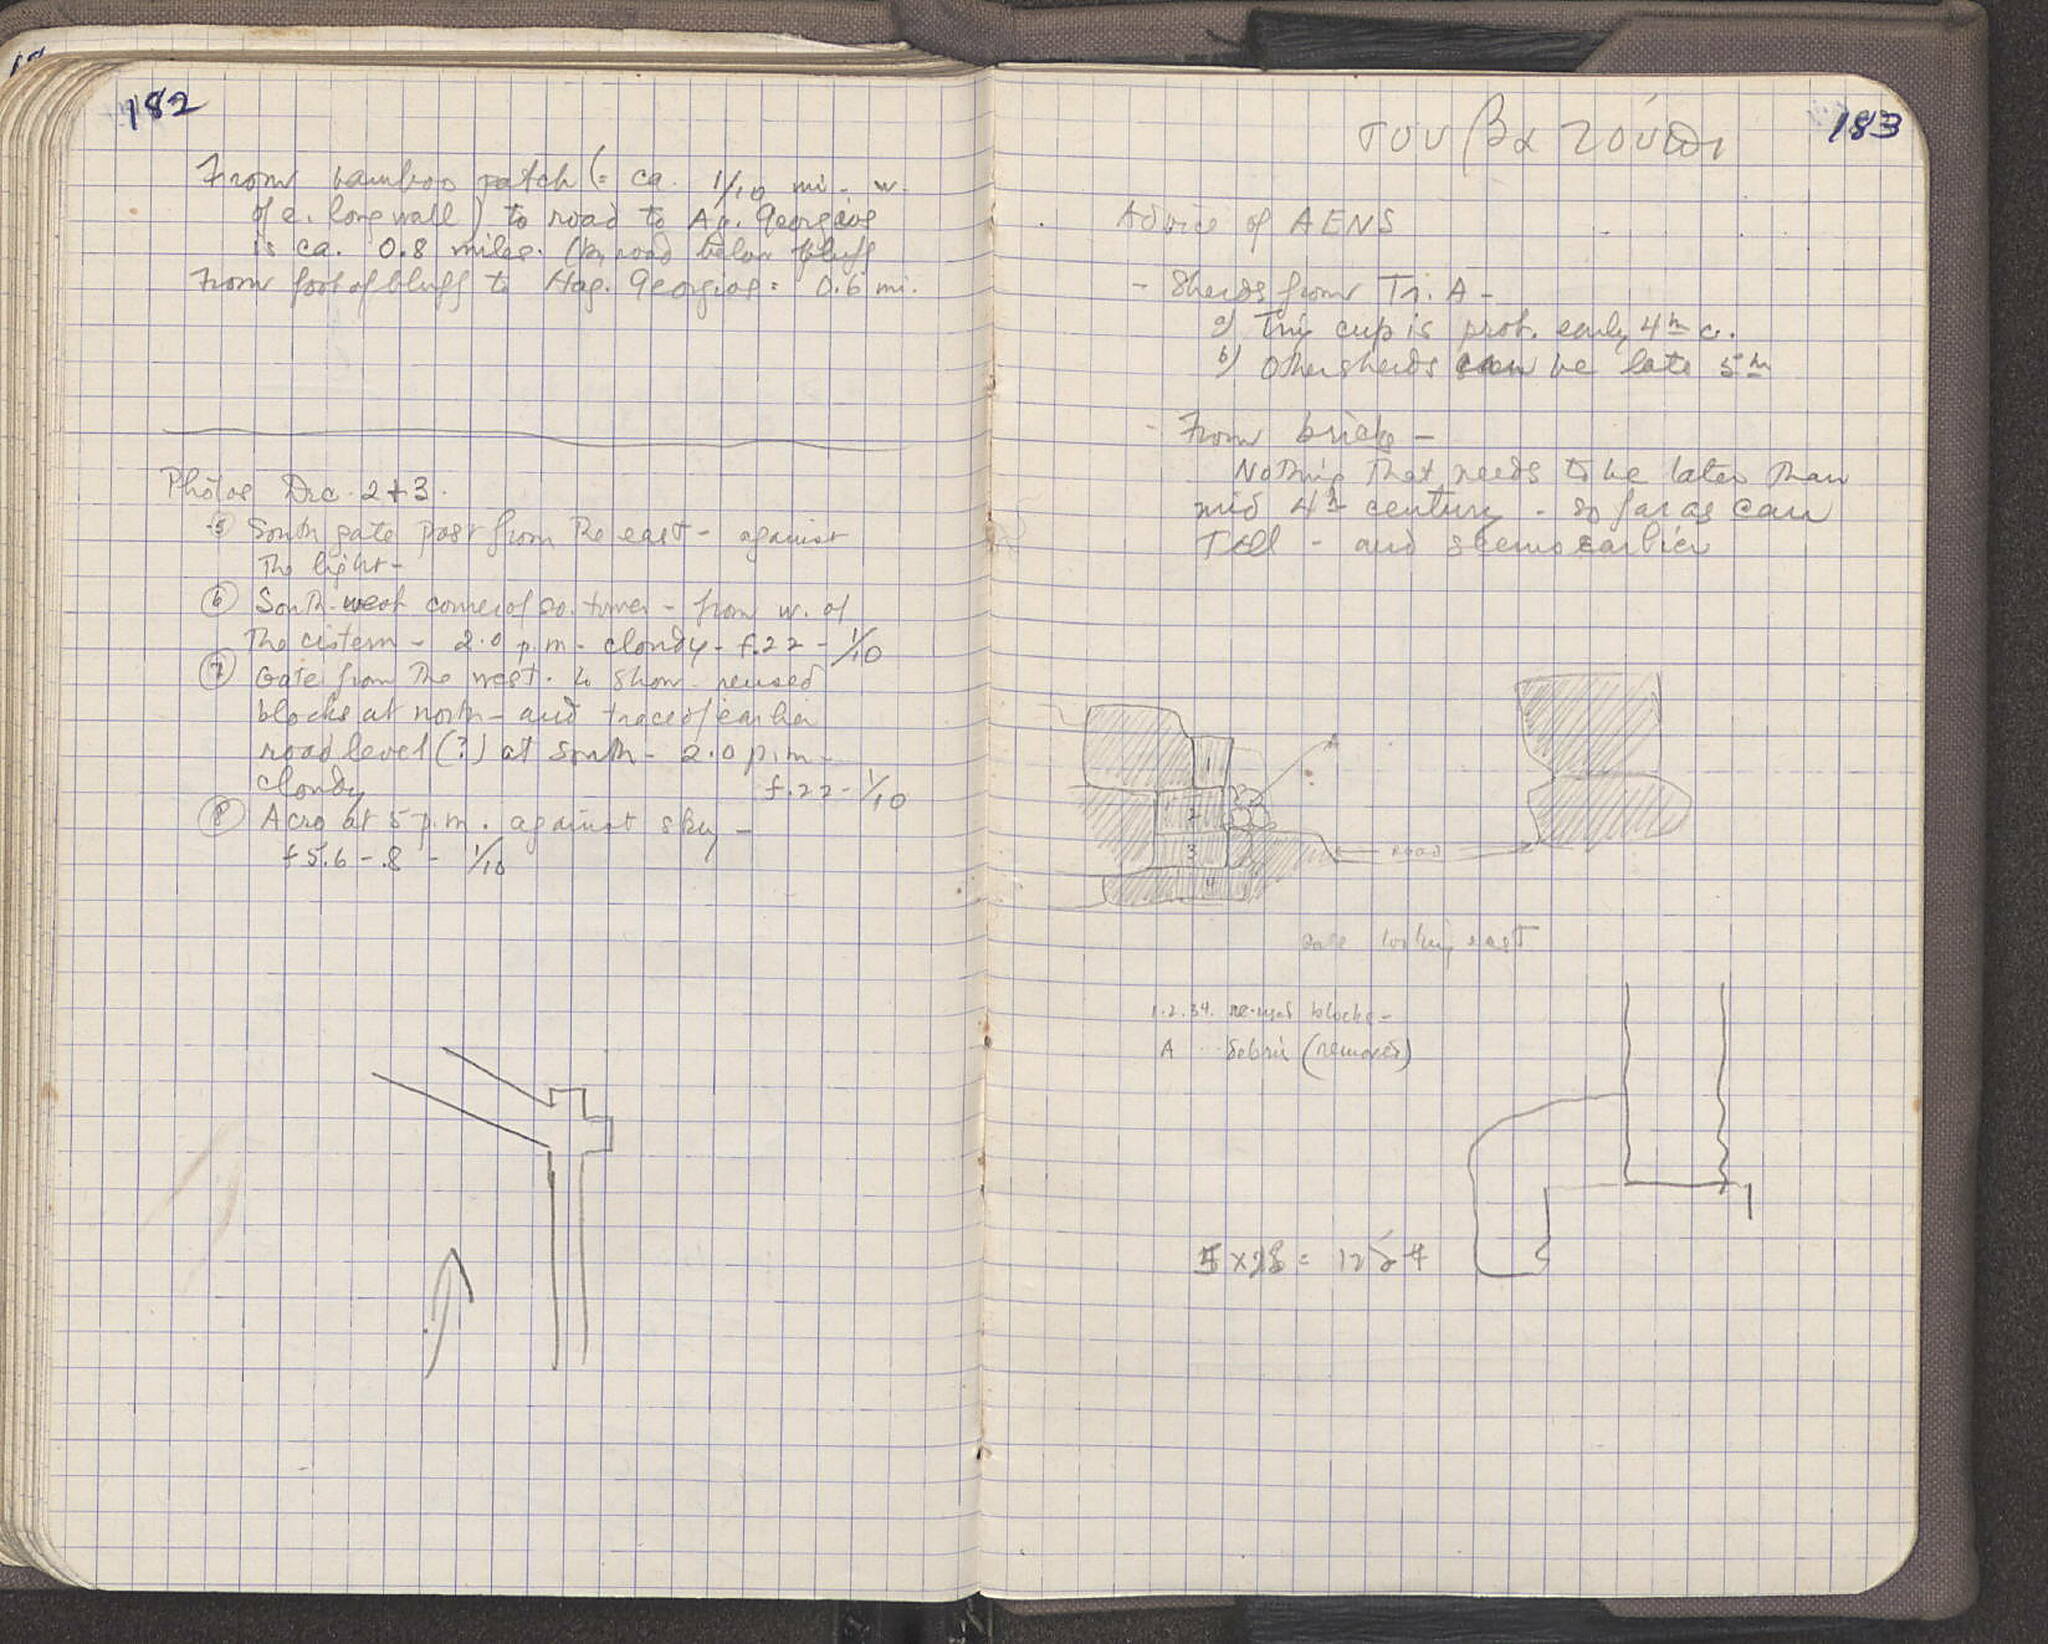 182
From bamboo patch (= ca. 1/10 mi. w.
of e. long wall) to road to Ag. Georgios
is ca. 0.8 miles. road below bluff
From foot of bluff to Hag. Georgios = 0.6 mi.
Photos Dec. 2 + 3.
5 South gate post from the east - against
the light -
6 South-west corner of so. tower - from w. of
the cistern - 2.0 p.m. - cloudy - f.22 - 1/10
7 Gate from the west. to show reused
blocks at north - and trace of earlier
road level (?) at south - 2.0 p.m -
cloudy f.22 - 1/10
8 Acro at 5 p.m. against sky -
f5.6 - .8 - 1/10
183
Advice of AENS
- Sherds from Tr. A -
a) Tiny cup is prob. early 4th c.
b) Other sherds can be late 5th
- From bricks -
Nothing that needs to be later than
mid 4th century - so far as can
tell - and seems earlier
A
1
2
3
4
road
gate looking east
1.2.34. re-used blocks -
A debris (removed)